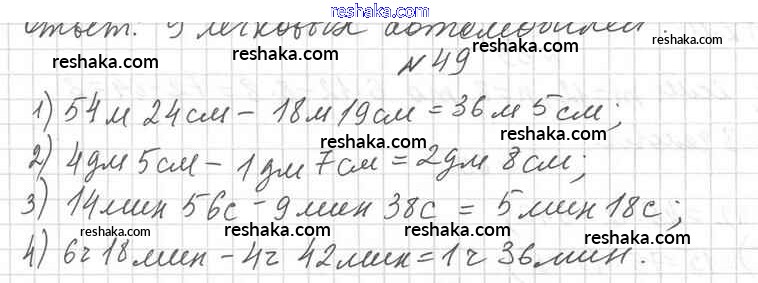 reshaka.com
Ответ. 9 легковых автомобилей.
reshaka.com reshaka.com
№49
reshaka.com reshaka.com reshaka.com
1) 54м 24см - 18м 19см = 36м 5см;
reshaka.com reshaka.com
2) 4дм 5см - 1дм 7см = 2дм 8см;
reshaka.com
3) 14мин 56с - 9мин 38с = 5мин 18с;
reshaka.com reshaka.com reshaka.com
4) 6ч 18мин - 4ч 42мин = 1ч 36мин.
reshaka.com reshaka.com